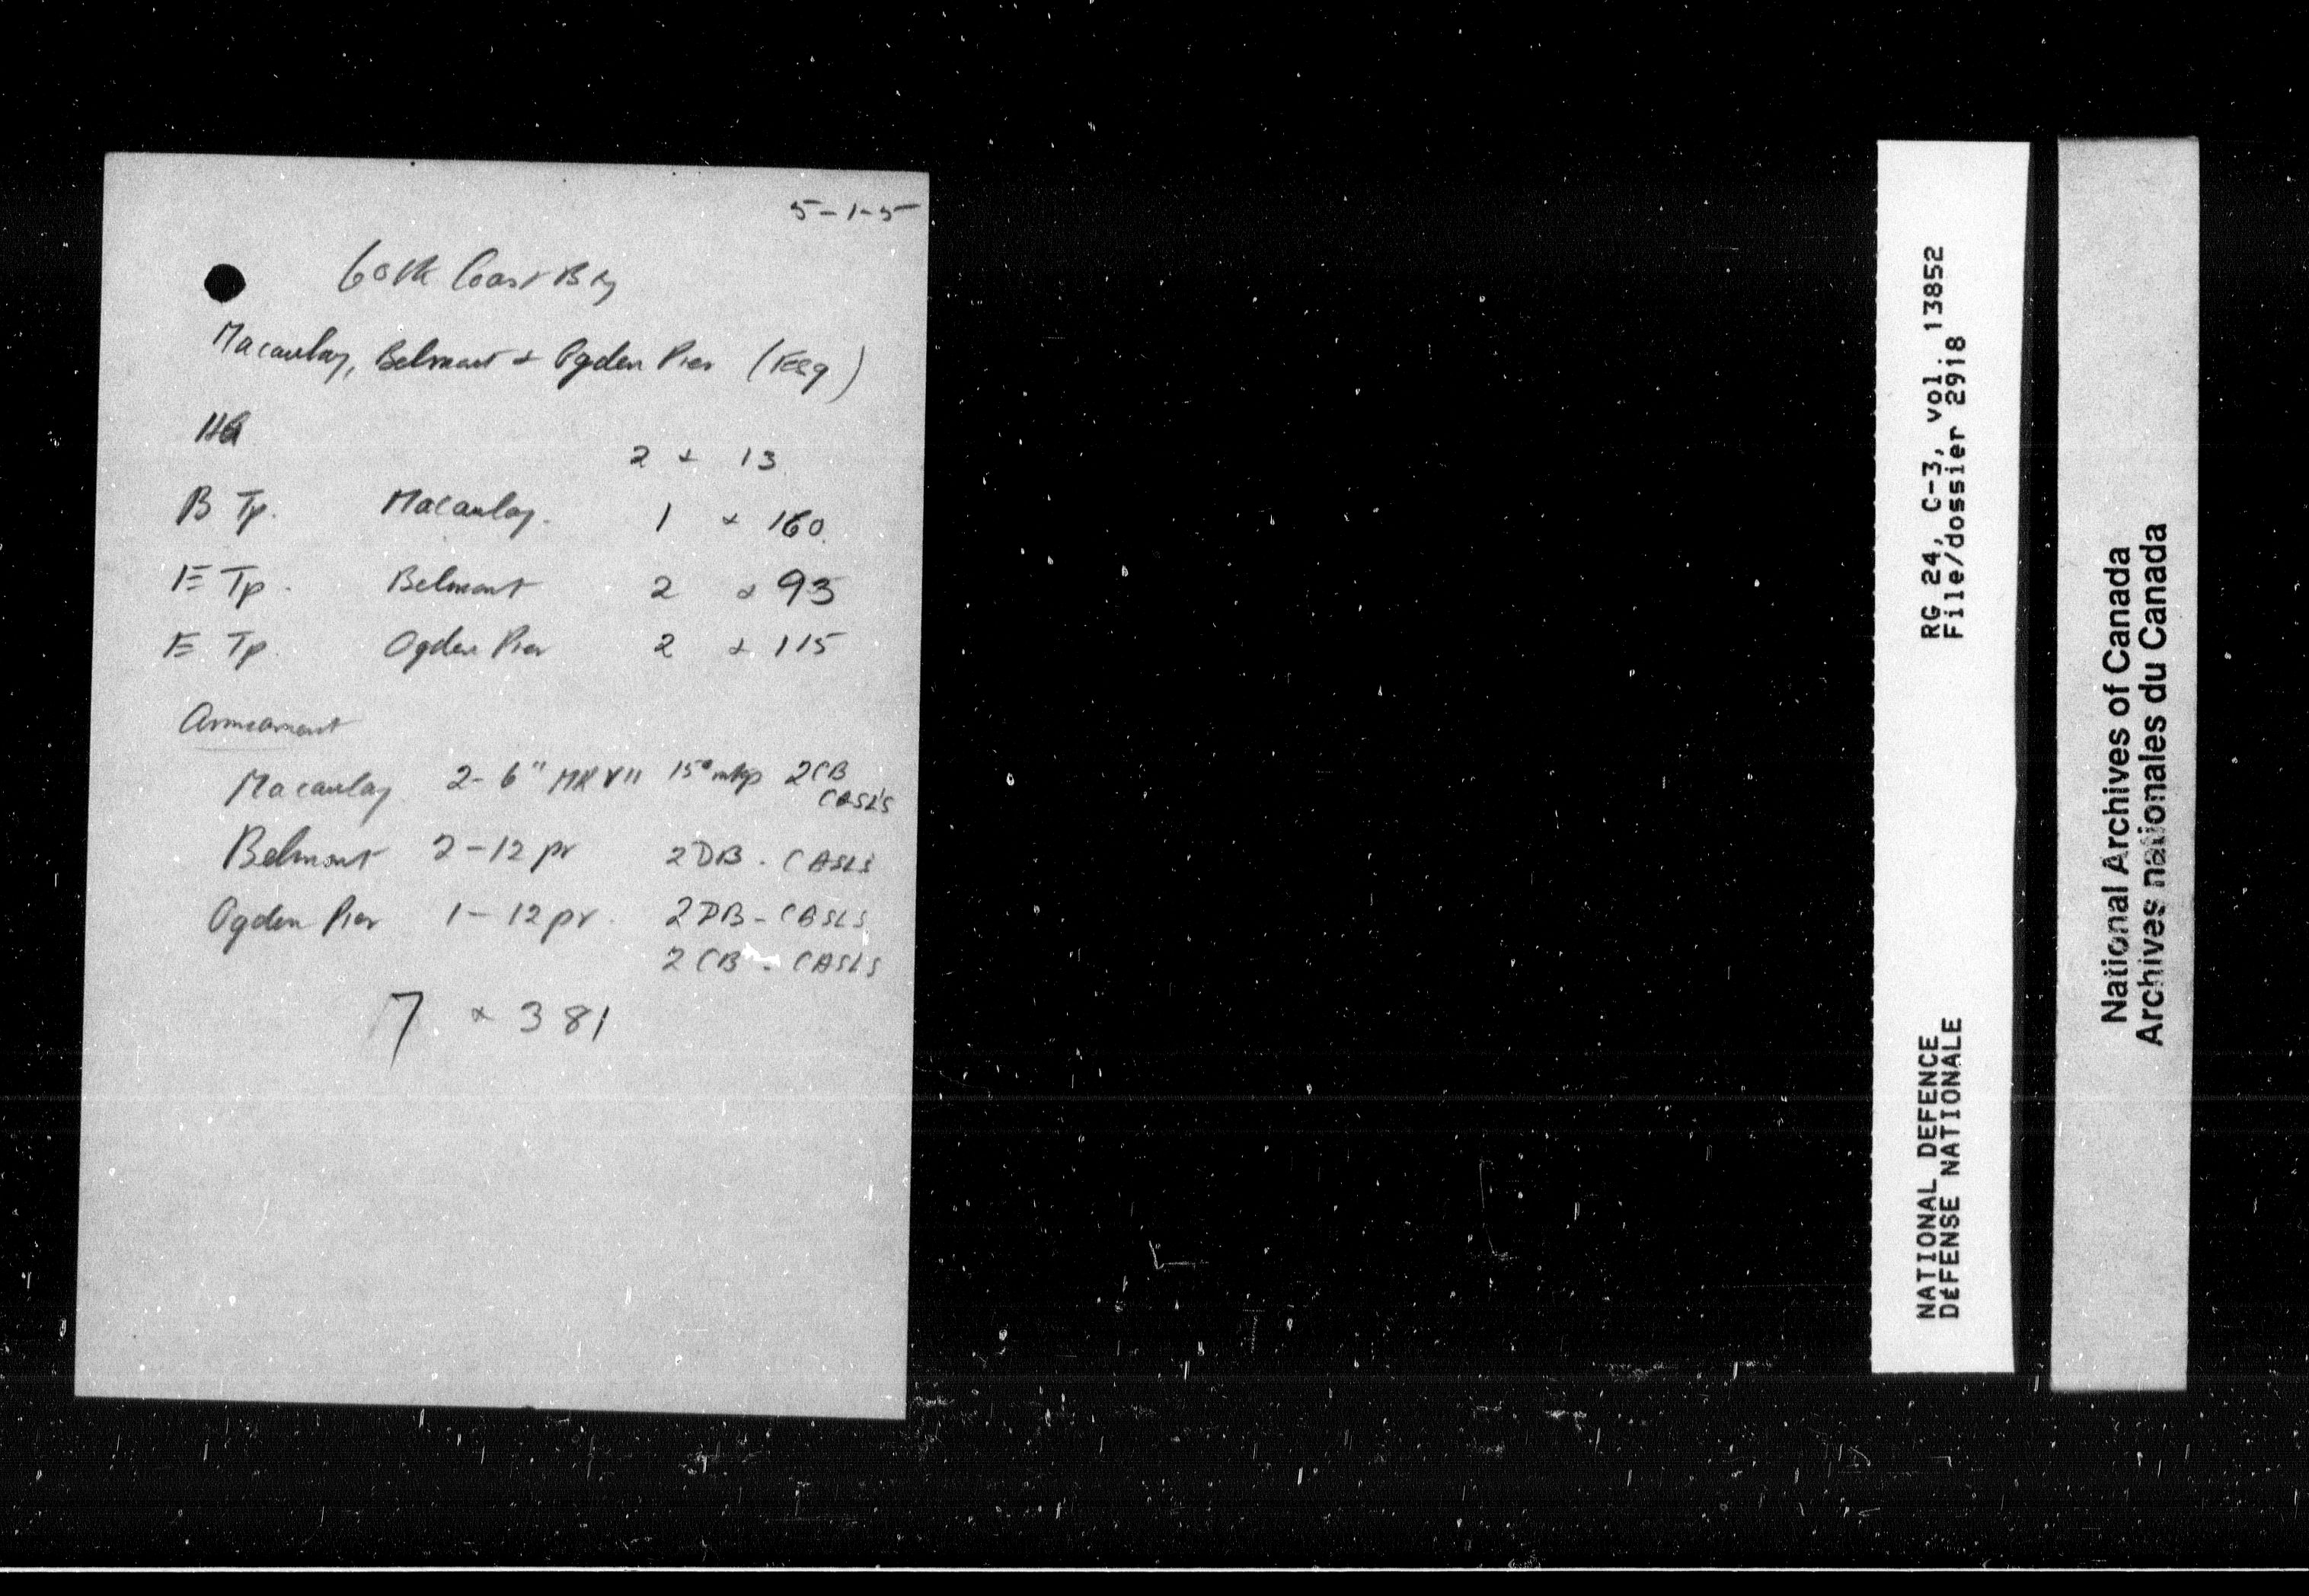 5-1-5
60th Coast Bty
Macaulay, Belmont + Ogden Pier (Esq)
HQ
2 + 13
B Tp. Macaulay. 1 + 160.
E Tp. Belmont 2 + 93
E Tp. Ogden Pier 2 + 115
Armament
Macaulay 2-6" MK VII 15° mtgs 2CB
CASL's
Belmont 2-12 pr 2 DB. CASLS
Ogden Pier 1-12 pr. 2 DB-CASLS
2 CB - CASLS
7 + 381
RG 24, C-3, vol. 13852
File/dossier 2918
NATIONAL DEFENCE
DÉFENSE NATIONALE
National Archives of Canada
Archives nationales du Canada